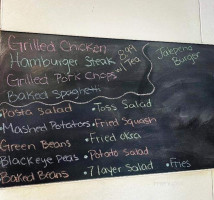 Grilled Chicken
Hamburger Steak
Grilled Pork Chops
Baked Spaghetti
8.99
+1 Tea
Jalapeno
Burger
Pasta Salad • Toss Salad
•Mashed Potatoes •Fried Squash
Green Beans •Fried okra
Blackeye Peas • Potato Salad
Baked Beans • 7 layer Salad • Fries